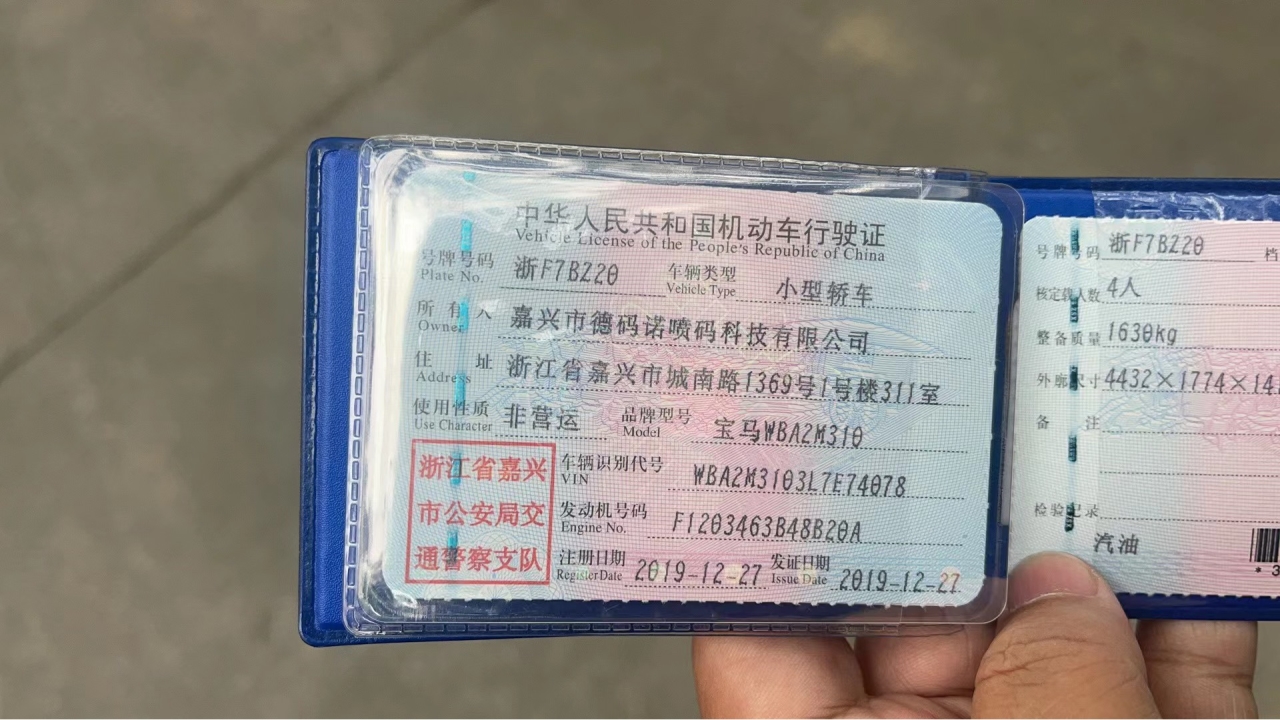 中华人民共和国机动车行驶证
Vehicle License of the People's Republic of China
号牌号码 浙F7BZ20 车辆类型 小型轿车
Plate No. Vehicle Type
所有人 嘉兴市德码诺喷码科技有限公司
Owner
住址 浙江省嘉兴市城南路1369号1号楼311室
Address
使用性质 非营运 品牌型号 宝马WBA2M310
Use Character Model
浙江省嘉兴
市公安局交
通警察支队
车辆识别代号 WBA2M3103L7E74078
VIN
发动机号码 F1203463B48B20A
Engine No.
注册日期 2019-12-27 发证日期 2019-12-27
Register Date Issue Date
号牌号码 浙F7BZ20 档
核定载人数 4人
整备质量 1630kg
外廓尺寸 4432×1774×14
备注
检验记录
汽油